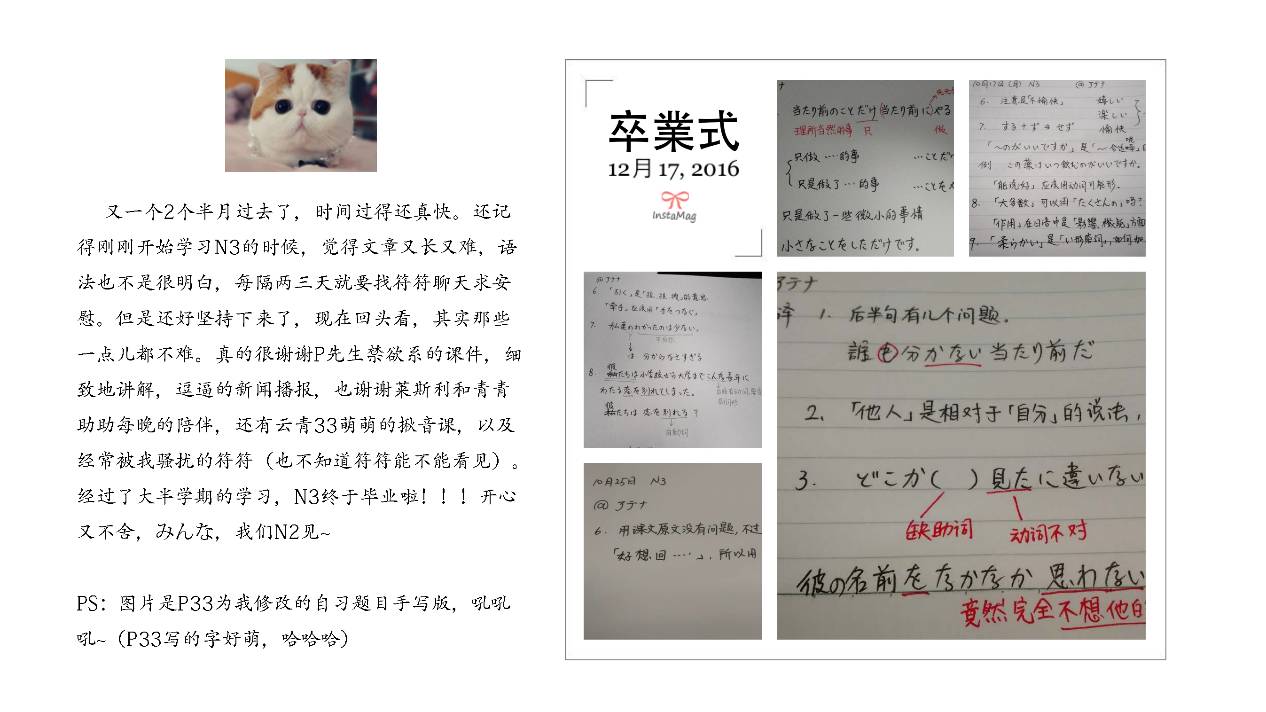 又一个2个半月过去了，时间过得还真快。还记
得刚刚开始学习N3的时候，觉得文章又长又难，语
法也不是很明白，每隔两三天就要找符符聊天求安
慰。但是还好坚持下来了，现在回头看，其实那些
一点儿都不难。真的很谢谢P先生禁欲系的课件，细
致地讲解，逗逼的新闻播报，也谢谢莱斯利和青青
助助每晚的陪伴，还有云青33萌萌的掀音课，以及
经常被我骚扰的符符（也不知道符符能不能看见）。
经过了大半学期的学习，N3终于毕业啦！！！开心
又不舍，みんな，我们N2见~
PS：图片是P33为我修改的自习题目手写版，吼吼
吼~（P33写的字好萌，哈哈哈）
卒業式
12月 17, 2016
InstaMag
当たり前のことだけ当たり前にやる
理所当然的事 只 做
只做 ‥‥的事 …ことだけ
只是做了 …的事 …ことを
只是做了一些微小的事情
小さなことをしただけです。
10月17日(月) N3 @アテナ
6. 注意是「不愉快」 嬉しい
楽しい
7. する+ず → せず 愉快
「〜のがいいですか」是「〜合适
例 この薬はいつ飲むのがいいですか。
「能洗好」应该用动词可能形。
8. 「大多数」可以用「たくさんの」吗？
「作用」在日语中是「影響、機能」方面
9. 「柔らかい」是「い形容词」，如何
@アテナ
6. 「引く」是「拉、拽」的意思.
「牵手」应该用「手をつなぐ」
7. 私達のわかったのは少ない。
は 分からなすぎる
8. 彼たちは小学校から大学までこんな長年に
わたる恋を別れてしまった。
彼たちは 恋を別れる？
自动词
10月25日 N3
@ アテナ
6. 用课文原文没有问题，不过
「好想回 ‥‥」，所以用
アテナ
译 1. 后半句有几个问题.
誰も分かない当たり前だ
2. 「他人」是相对于「自分」的说法，
3. どこか( )見たに違いない
缺助词 动词不对
彼の名前をなかなか思わない
竟然完全不想他的